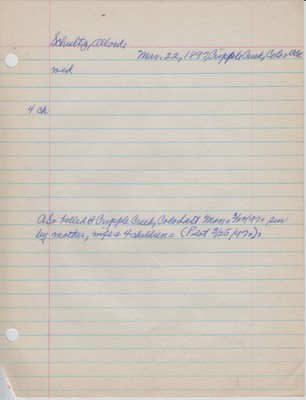 Schultz,
Mar. 22, 1897, Cripple Creek, Colo.,
med
4 ch
killed @ Cripple Creek, Colo. last Mon. 3/22/97. sur
by mother, wife & 4 children. (Pilot 3/25/97).